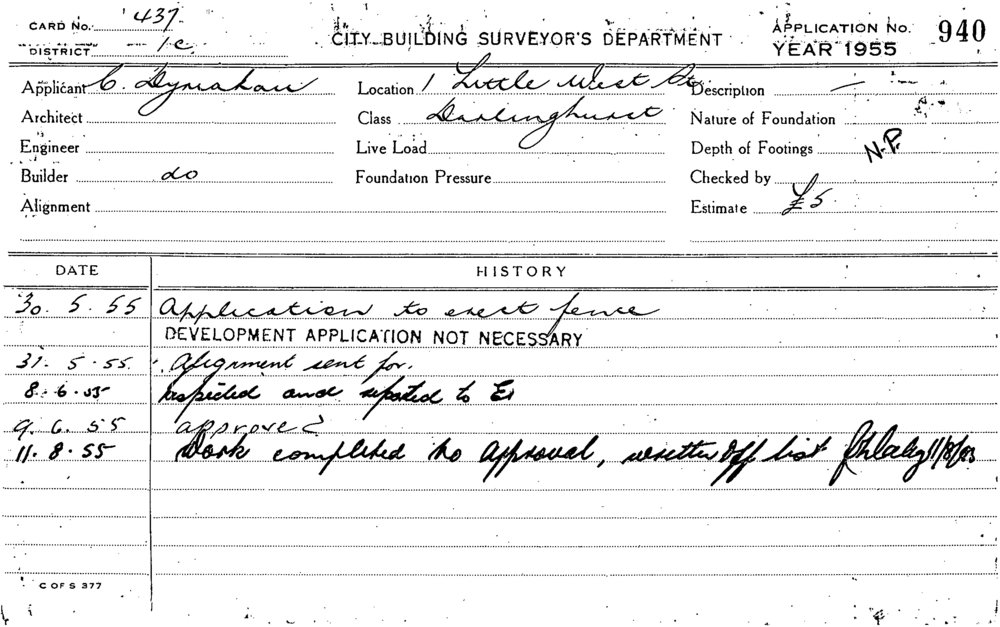 CARD No. 437
DISTRICT 1c
CITY BUILDING SURVEYOR'S DEPARTMENT
APPLICATION No. 940
YEAR 1955
Applicant C. Location 1 Little West St Description —
Architect Class Darlinghurst Nature of Foundation
Engineer Live Load Depth of Footings N.P.
Builder do Foundation Pressure Checked by
Alignment Estimate £5
DATE HISTORY
30. 5. 55 Application to erect fence
DEVELOPMENT APPLICATION NOT NECESSARY
31. 5. 55. Alignment sent for.
8. 6. 55 Inspected and reported to
9. 6. 55 approved
11. 8. 55 Work completed to Approval, written off list 11/8/55
C OF S 377